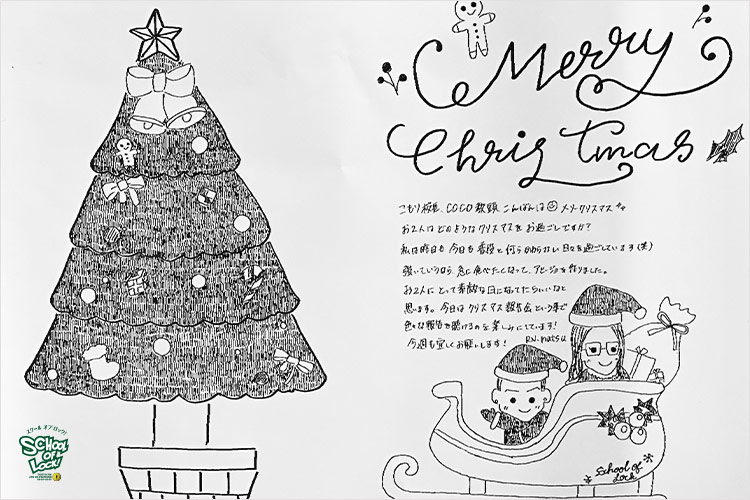 Merry
Christmas
こもり校長、COCO教頭 こんばんは☺ メリークリスマス
お2人はどのようなクリスマスをお過ごしですか?
私は昨日も今日も普段と何ら変わらない日々を過ごしています(笑)
強いていうなら、急に食べたくなって、アヒージョを作りました。
お2人にとって素敵な日になってたらいいなと
思います。今日はクリスマス報告会という事で
色々な報告を聴けるのを楽しみにしています!
今週も宜しくお願いします! RN.natsu
School of
Lock
スクール オブ ロック!
SCHOOL
OF
LOCK!